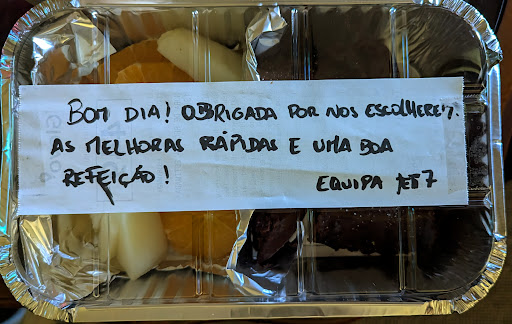 BOM DIA! OBRIGADA POR NOS ESCOLHEREM.
AS MELHORAS RÁPIDAS E UMA BOA
REFEIÇÃO!
EQUIPA